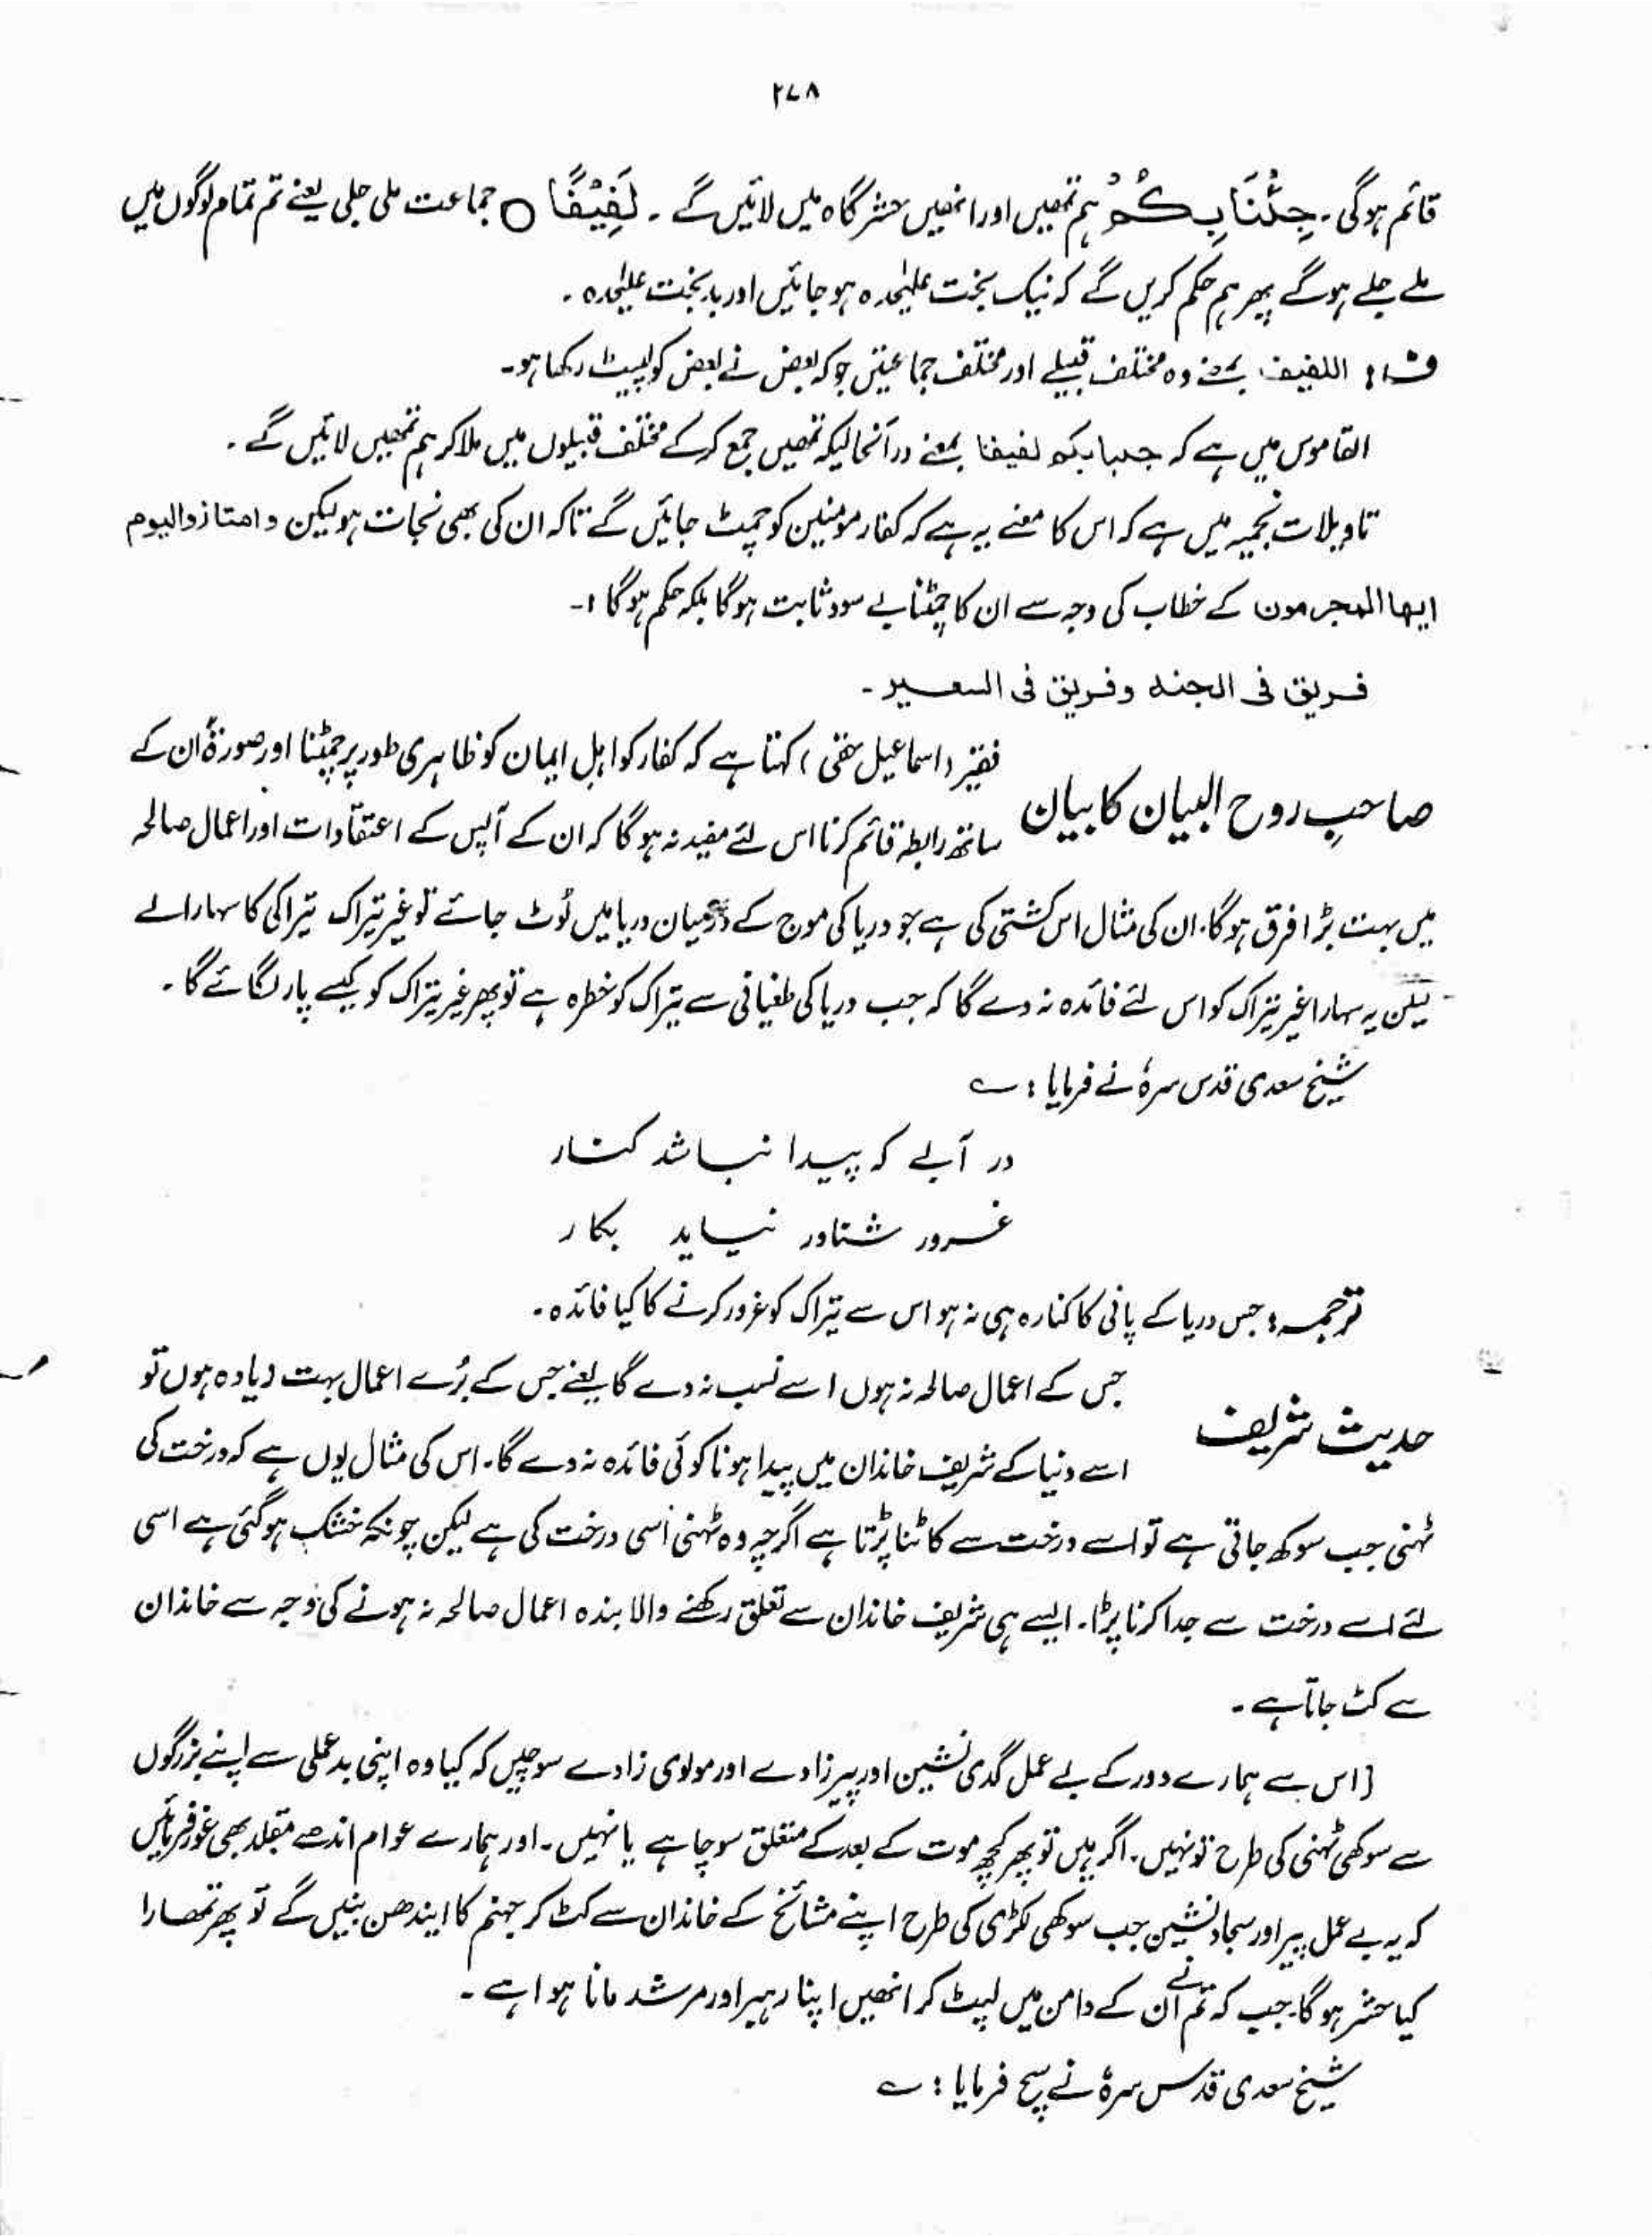 ۲۷۸
قائم ہوگی۔ جِئْنَا بِكُمْ ہم تمھیں اور انھیں حشر گاہ میں لائیں گے۔ لَفِيْفًا ○ جماعت ملی جلی یعنے تم تمام لوگوں میں
ملے جلے ہوگے پھر ہم حکم کریں گے کہ نیک بخت علیٰحدہ ہو جائیں اور بدبخت علیٰحدہ۔
ف: اللفیف بمعنے وہ مختلف قبیلے اور مختلف جماعتیں جو کہ بعض نے بعض کو لپیٹ رکھا ہو۔
القاموس میں ہے کہ جئنا بکم لفیفا بمعنے درآنحالیکہ تمھیں جمع کرکے مختلف قبیلوں میں ملا کر ہم تمھیں لائیں گے۔
تاویلات نجمیہ میں ہے کہ اس کا معنے یہ ہے کہ کفار مومنین کو چمٹ جائیں گے تاکہ ان کی بھی نجات ہو لیکن وامتازوا الیوم
ایھا المجرمون کے خطاب کی وجہ سے ان کا چمٹنا بے سود ثابت ہوگا بلکہ حکم ہوگا :-
فریق فی الجنہ وفریق فی السعیر۔
صاحبِ روح البیان کا بیان
فقیر (اسماعیل حقی) کہتا ہے کہ کفار کو اہل ایمان کو ظاہری طور پر چمٹنا اور صورۃً ان کے
ساتھ رابطہ قائم کرنا اس لئے مفید نہ ہوگا کہ ان کے آپس کے اعتقادات اور اعمال صالحہ
میں بہت بڑا فرق ہوگا۔ ان کی مثال اس کشتی کی ہے جو دریا کی موج کے درمیان دریا میں ٹوٹ جائے تو غیر تیراک تیراکی کا سہارا لے
لیکن یہ سہارا غیر تیراک کو اس لئے فائدہ نہ دے گا کہ جب دریا کی طغیانی سے تیراک کو خطرہ ہے تو پھر غیر تیراک کو کیسے پار لگائے گا۔
شیخ سعدی قدس سرہٗ نے فرمایا : ؎
در آبے کہ پیدا نباشد کنار
غرور شناور نیاید بکار
ترجمہ: جس دریا کے پانی کا کنارہ ہی نہ ہو اس سے تیراک کو غرور کرنے کا کیا فائدہ۔
حدیث شریف
جس کے اعمال صالحہ نہ ہوں اسے نسب نہ دے گا یعنے جس کے بُرے اعمال بہت زیادہ ہوں تو
اسے دنیا کے شریف خاندان میں پیدا ہونا کوئی فائدہ نہ دے گا۔ اس کی مثال یوں ہے کہ درخت کی
ٹہنی جب سوکھ جاتی ہے تو اسے درخت سے کاٹنا پڑتا ہے اگرچہ وہ ٹہنی اسی درخت کی ہے لیکن چونکہ خشک ہوگئی ہے اسی
لئے اسے درخت سے جدا کرنا پڑا۔ ایسے ہی شریف خاندان سے تعلق رکھنے والا بندہ اعمال صالحہ نہ ہونے کی وجہ سے خاندان
سے کٹ جاتا ہے۔
[اس سے ہمارے دور کے بے عمل گدی نشین اور پیرزادے اور مولوی زادے سوچیں کہ کیا وہ اپنی بدعملی سے اپنے بزرگوں
سے سوکھی ٹہنی کی طرح تو نہیں۔ اگر ہیں تو پھر کچھ موت کے بعد کے متعلق سوچا ہے یا نہیں۔ اور ہمارے عوام اندھے مقلد بھی غور فرمائیں
کہ یہ بے عمل پیر اور سجادہ نشین جب سوکھی لکڑی کی طرح اپنے مشائخ کے خاندان سے کٹ کر جہنم کا ایندھن بنیں گے تو پھر تمھارا
کیا حشر ہوگا۔ جب کہ تم نے ان کے دامن میں لپٹ کر انھیں اپنا رہبر اور مرشد مانا ہوا ہے۔
شیخ سعدی قدس سرہٗ نے سچ فرمایا : ؎